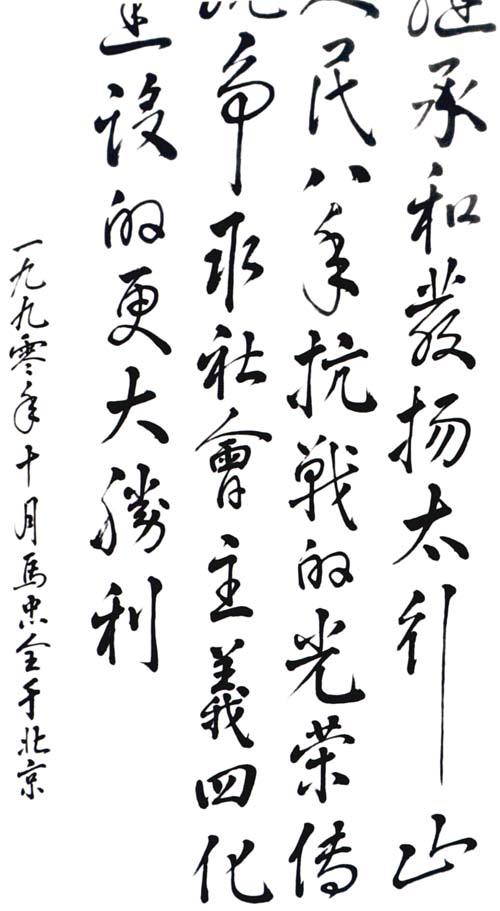 继承和發扬太行山
人民八年抗戦的光荣傳
统争取社會主義四化
建设的更大勝利
一九九零年十月馬忠全于北京